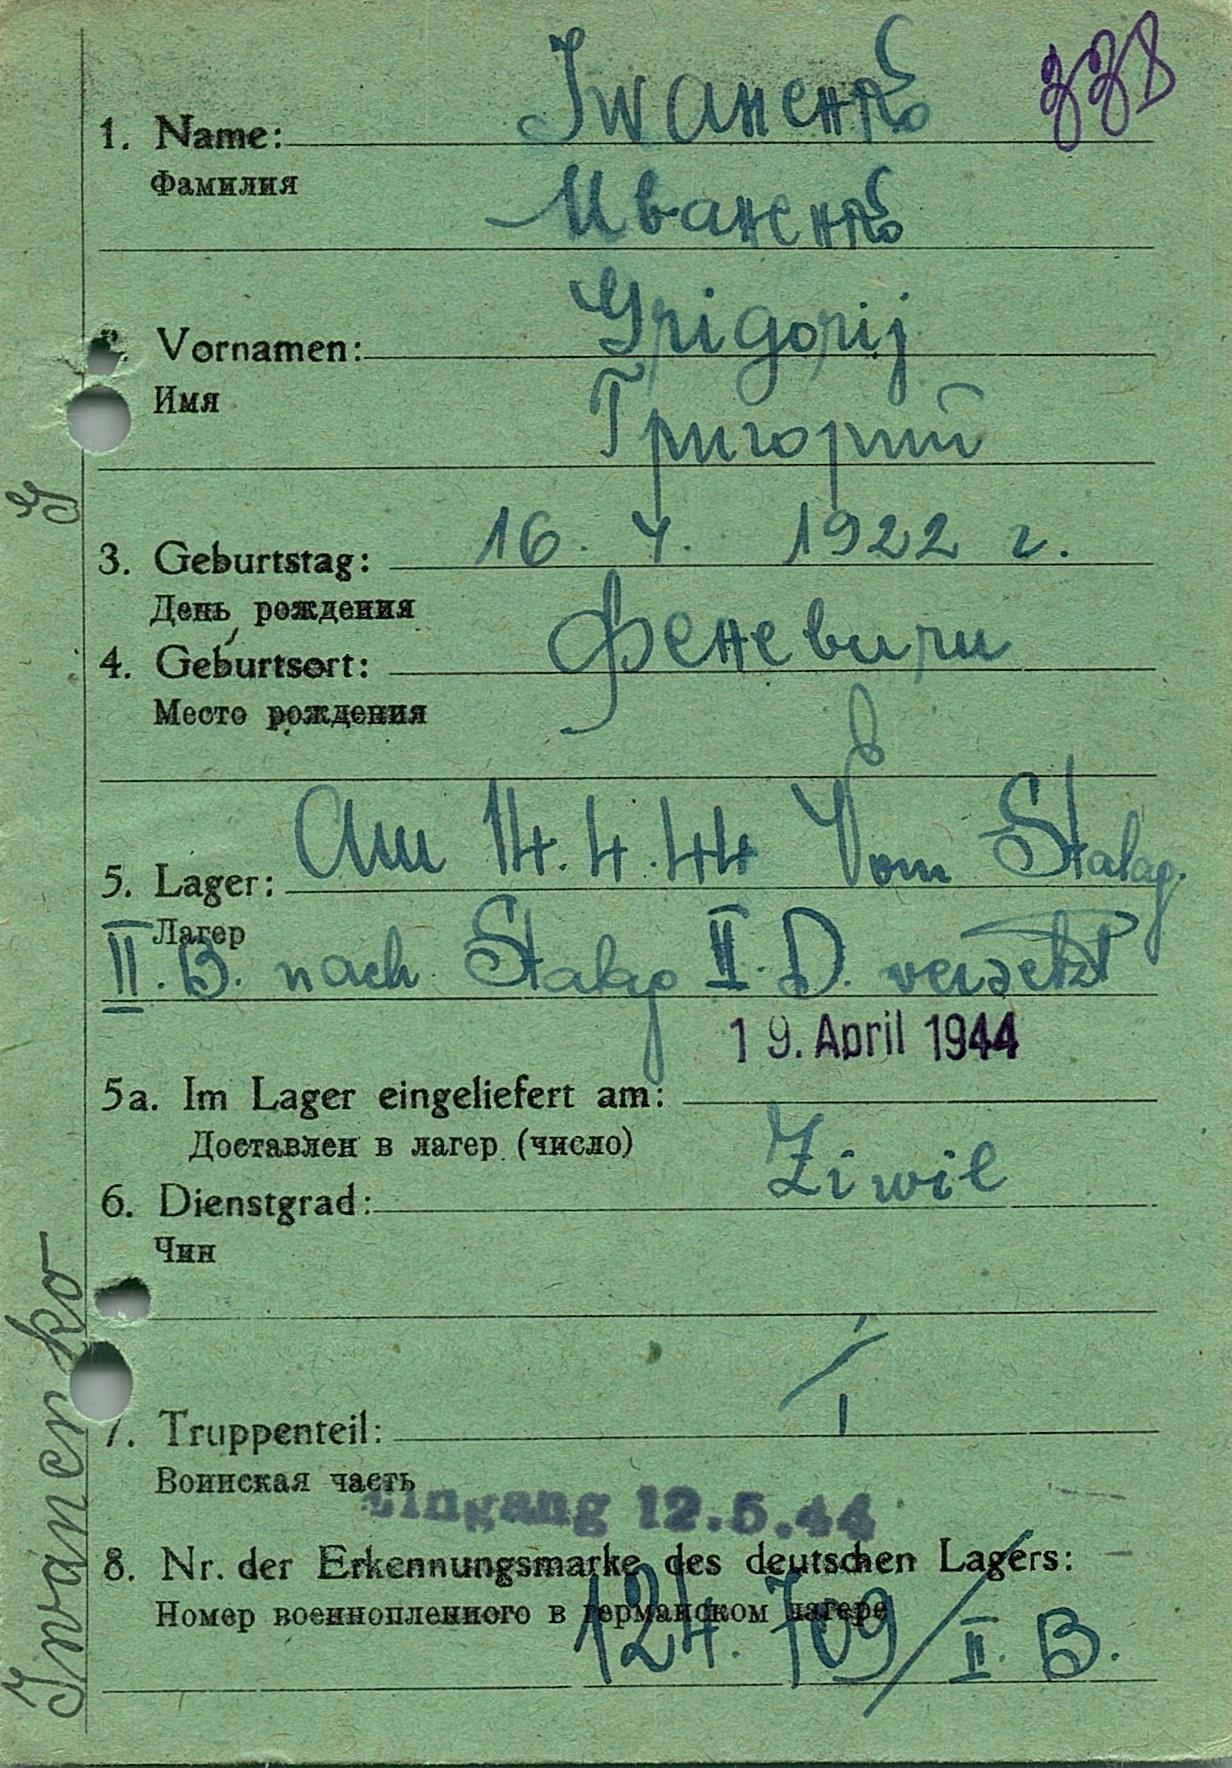 338
1. Name: Iwаненко
Фамилия
Иваненко
2. Vornamen: Grigorij
Имя
Григорий
3. Geburtstag: 16. 4. 1922 г.
День рождения
4. Geburtsort: Феневичи
Место рождения
5. Lager: Am 14.4.44 Vom Stalag.
Лагер
II.B. nach Stalag II.D. versetzt
19. April 1944
5a. Im Lager eingeliefert am:
Доставлен в лагер (число)
6. Dienstgrad: Ziwil
Чин
7. Truppenteil:
Воинская часть
Eingang 12.5.44
8. Nr. der Erkennungsmarke des deutschen Lagers:
Номер военнопленного в германском лагере
124.709/II.B.
Iwanenko